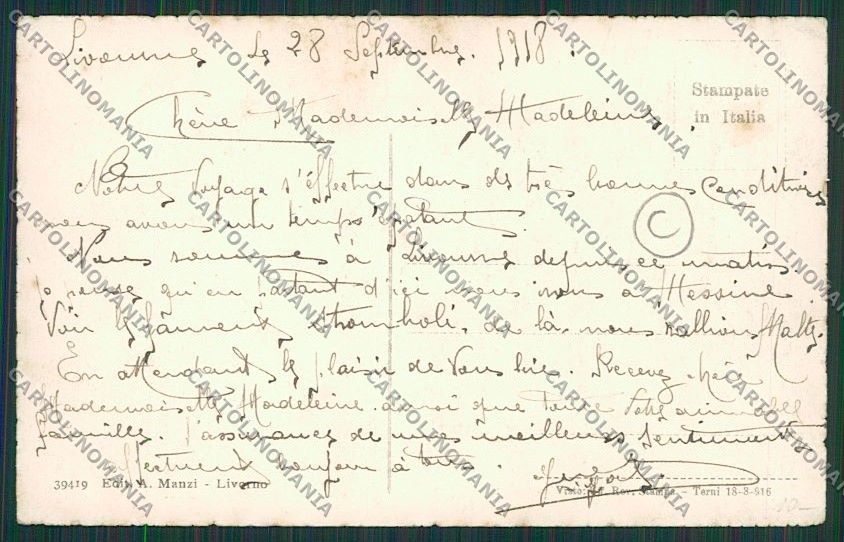 Livourne le 28 Septembre. 1918.
Stampate
in Italia
Chère Mademoiselle Madeleine.
Notre Voyage s'éffectue dans de très bonnes Conditions
nous avons un temps épatant.
Nous sommes à Livourne depuis ce matin
je pense qu'en partant d'ici nous irons à Messine
Voir le fameux Stromboli. de là nous rallions Malte.
En attendant le plaisir de Vous lire. Recevez chère
Mademoiselle Madeleine ainsi que toute Votre aimable
famille. l'assurance de mes meilleurs Sentiments
bonjour à tous.
39419 Edit. A. Manzi - Livorno
Visto: Rev. Stampa - Terni 18-8-916
C
10-
CARTOLINOMANIA